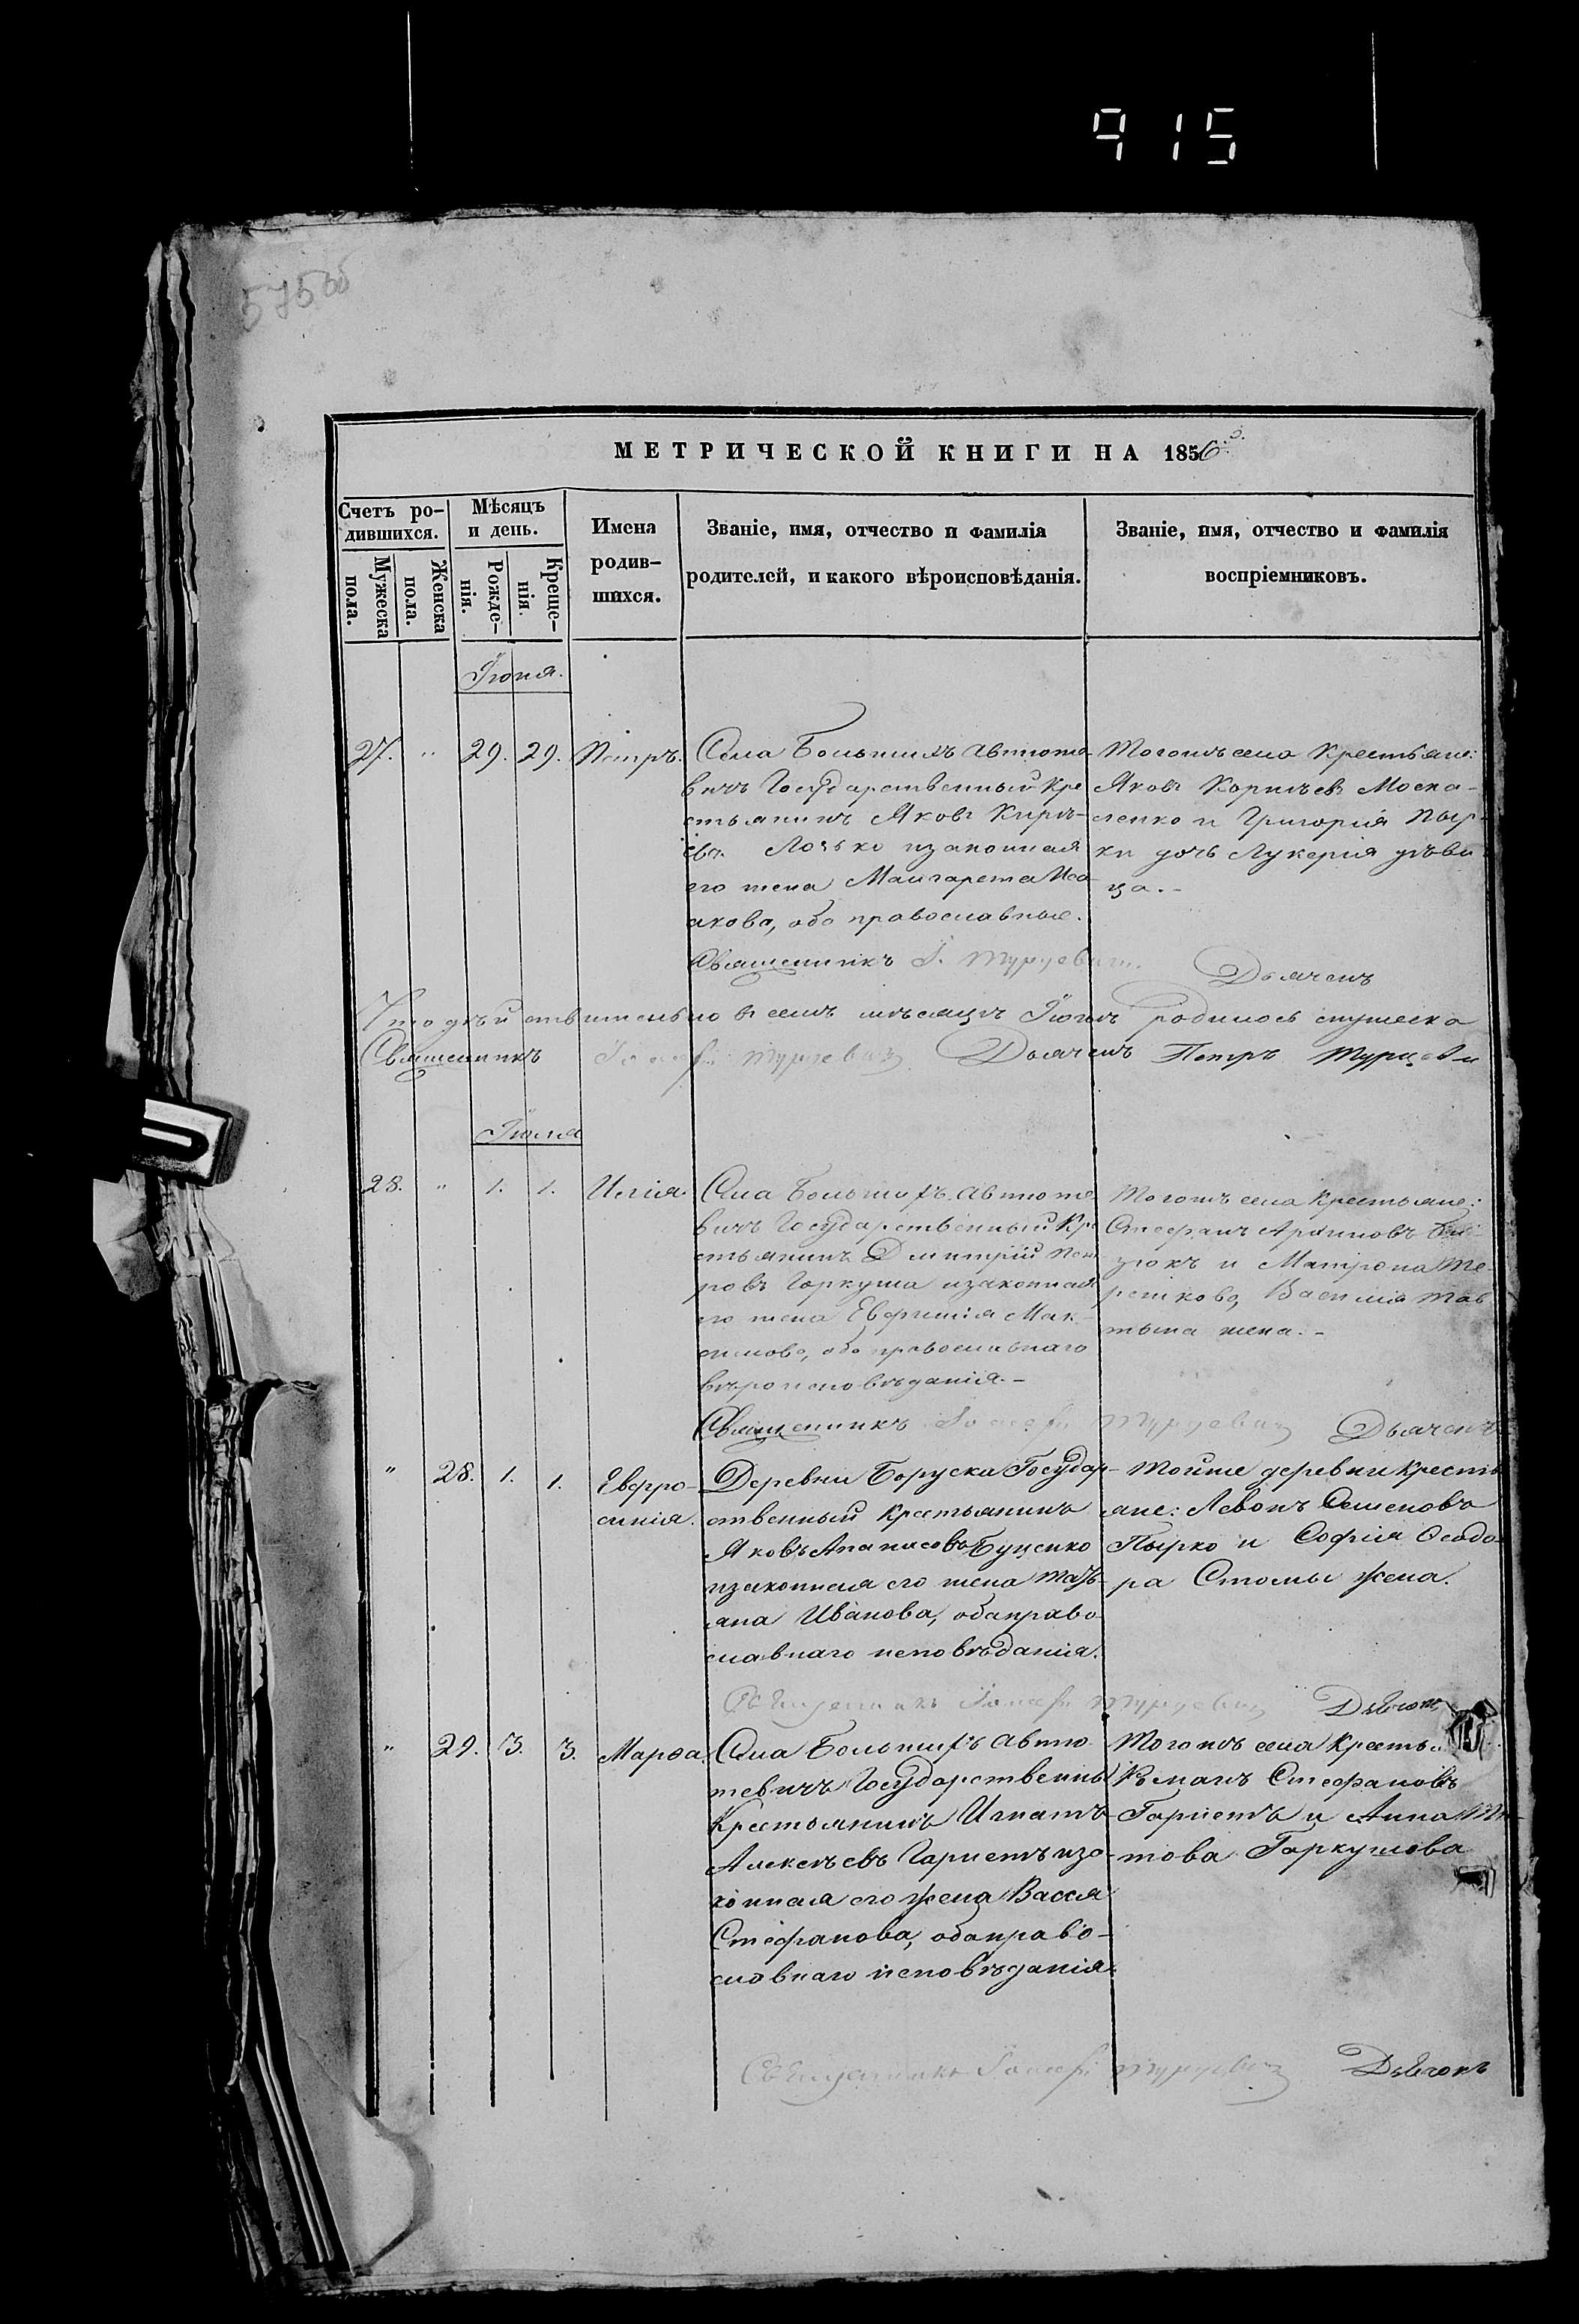 915
575об
МЕТРИЧЕСКОЙ КНИГИ НА 1856
Счетъ ро-
дившихся.
Мѣсяцъ
и день.
Имена
родив-
шихся.
Званіе, имя, отчество и фамилія
родителей, и какого вѣроисповѣданія.
Званіе, имя, отчество и фамилія
воспріемниковъ.
Мужеска
пола.
Женска
пола.
Рожде-
нія.
Креще-
нія.
Іюня.
27. " 29. 29. Петръ.
Села Большихъ Автюте-
вичъ Государственный Кре
стьянинъ Яковъ Кирѣ-
евъ изаконная
его жена Маргарета Иса
акова, оба православные.
Тогожъ села Крестьяне:
Яковъ Корнѣевъ Моска-
ленко и Григорія Пыр-
ки дочь Лукерія дѣви
ца.-
Священникъ І. Турцевичъ.
Дьячекъ
Что дѣйствительно в семъ мѣсяцѣ Іюнѣ родилось мужеска
Священникъ Іосифъ Турцевичъ Дьячекъ Петръ Турцеви
Іюля
28. " 1. 1. Илія.
Села Большихъ Автюте
вичъ Государственный Кре
стьянинъ Димитрій Пет
ровъ Гаркуша изаконная
его жена Евфимія Мак-
симова, оба православнаго
вѣроисповѣданія.-
Тогожъ села Крестьяне:
Стефанъ
зюкъ и Матрона Те-
решкова, Василія
жена.-
Священникъ Іосифъ Турцевичъ Дьячекъ
" 28. 1. 1. Евфро-
синія.
Деревни Боруска Государ-
ственный Крестьянинъ
Яковъ Апанасовъ Буценко
изаконная его жена Тать-
яна Иванова, оба право
славнаго исповѣданія.
Тойже деревни Кресть
яне: Левонъ Семеновъ
Пырко и Софія Ѳеодо-
ра Стомы жена.
Священникъ Іосифъ Турцевичъ Дьячокъ
" 29. 3. 3. Марѳа.
Села Большихъ Автю
тевичъ Государственный
Крестьянинъ Игнатъ
Алексѣевъ Гаристъ иза-
конная его жена Васса
Стефанова, оба право-
славнаго исповѣданія.
Тогожъ села Кресть
Стефановъ
Гаристъ и Анна Ти-
това Гаркушова
Священникъ Іосифъ Турцевичъ Дьячокъ